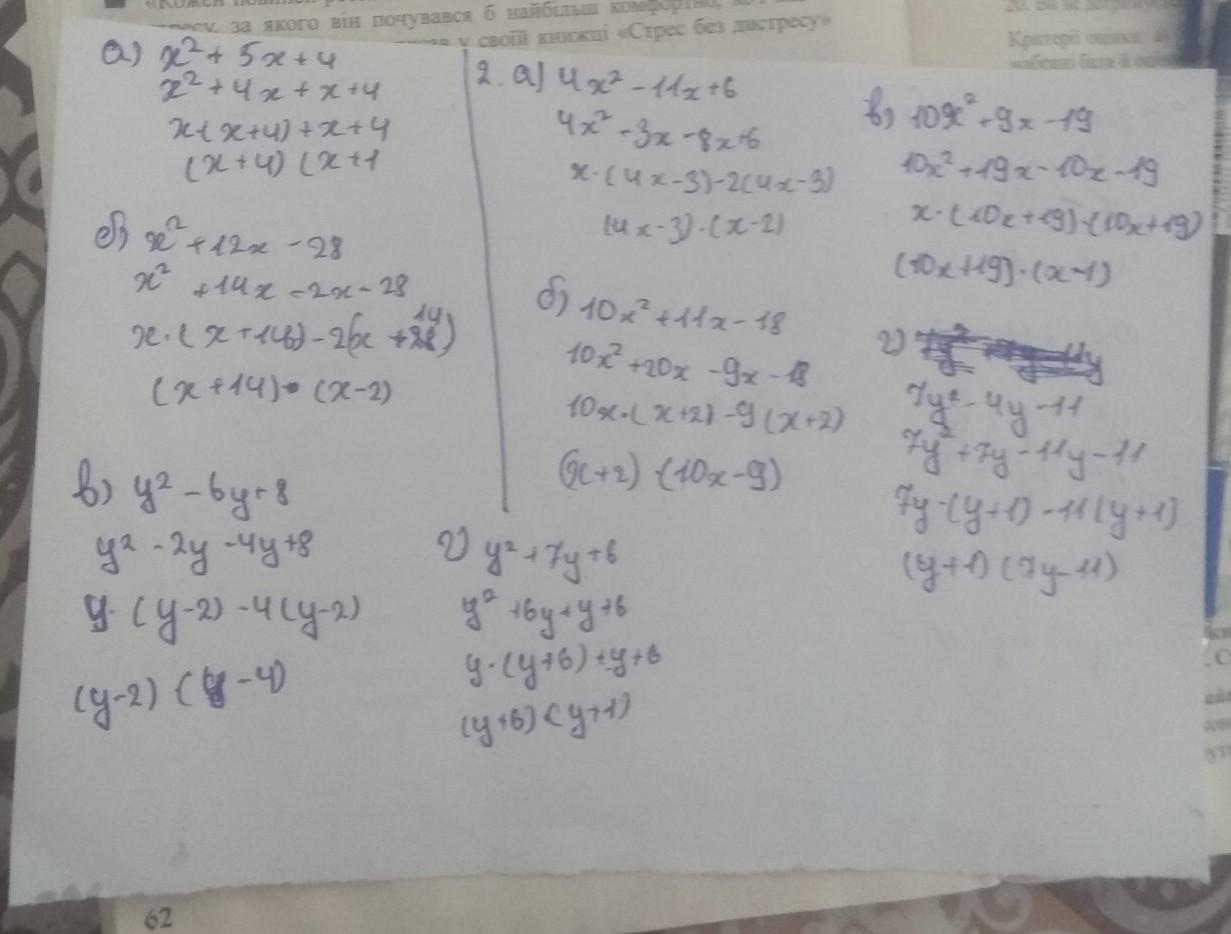 «Кожен
за якого він почувався б найбільш комфортно,
у своїй книжці «Стрес без дистресу»
Критерії оцінок:
а) x² + 5x + 4
x² + 4x + x + 4
x·(x+4) + x + 4
(x+4) (x+1
б) x² + 12x - 28
x² + 14x - 2x - 28
x·(x+14) - 2(x + 14)
(x+14)·(x-2)
в) y² - 6y + 8
y² - 2y - 4y + 8
y·(y-2) - 4(y-2)
(y-2) (y-4)
г) y² + 7y + 6
y² + 6y + y + 6
y·(y+6) + y + 6
(y+6)(y+1)
2. а) 4x² - 11x + 6
4x² - 3x - 8x + 6
x·(4x-3) - 2(4x-3)
(4x-3)·(x-2)
б) 10x² + 11x - 18
10x² + 20x - 9x - 18
10x·(x+2) - 9(x+2)
(x+2)·(10x-9)
в) 10x² + 9x - 19
10x² + 19x - 10x - 19
x·(10x+19)-(10x+19)
(10x+19)·(x-1)
г)
7y² - 4y - 11
7y² + 7y - 11y - 11
7y·(y+1) - 11(y+1)
(y+1)(7y-11)
62